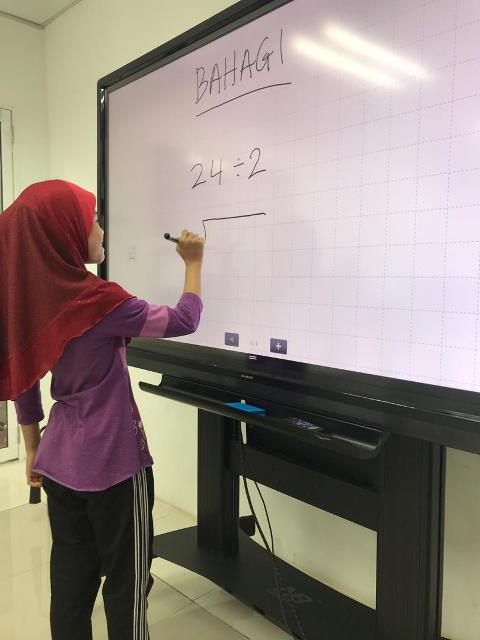 BAHAGI
24 ÷ 2